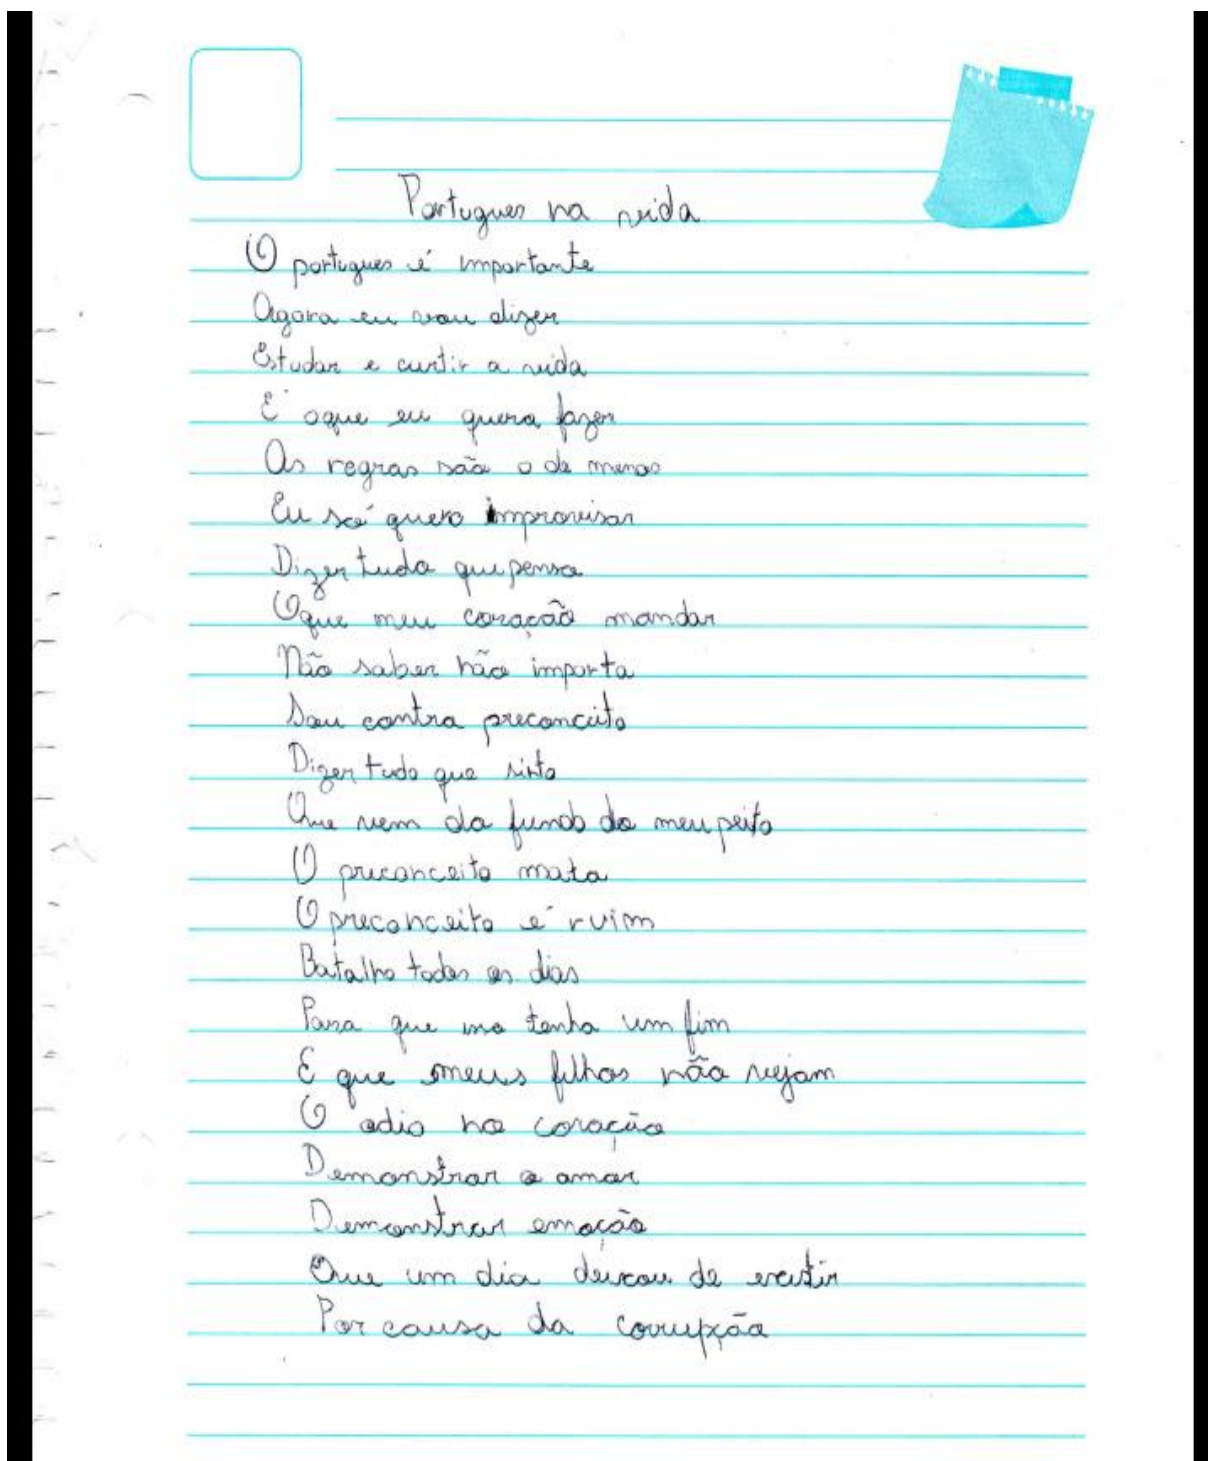 Portugues na vida
O portugues é importante
Agora eu vou dizer
Estudar e curtir a vida
É oque eu quero fazer
As regras são o de menos
Eu só quero improvisar
Dizer tudo que penso
Oque meu coração mandar
Não saber não importa
Sou contra preconceito
Dizer tudo que sinto
Que vem do fundo do meu peito
O preconceito mata
O preconceito é ruim
Batalho todos os dias
Para que isso tenha um fim
E que meus filhos não vejam
O odio no coração
Demonstrar o amor
Demonstrar emoção
Que um dia deixou de existir
Por causa da corrupção